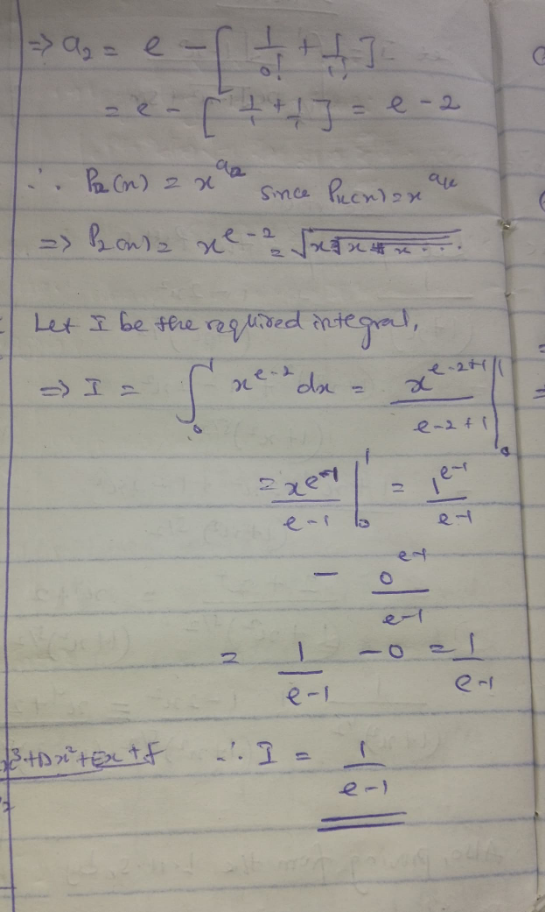 ⇒ a₂ = e − [1/0! + 1/1!]
= e − [1/1 + 1/1] = e − 2
∴ P₂(x) = x^a₂ since Pₖ(x) = x^aₖ
⇒ P₂(x) = x^(e−2) = √x∛x∜x...
Let I be the required integral,
⇒ I = ∫₀¹ x^(e−2) dx = x^(e−2+1)/(e−2+1) |₀¹
= x^(e−1)/(e−1) |₀¹ = 1^(e−1)/(e−1)
− 0^(e−1)/(e−1)
= 1/(e−1) − 0 = 1/(e−1)
x³+Dx²+Ex+F ∴ I = 1/(e−1)